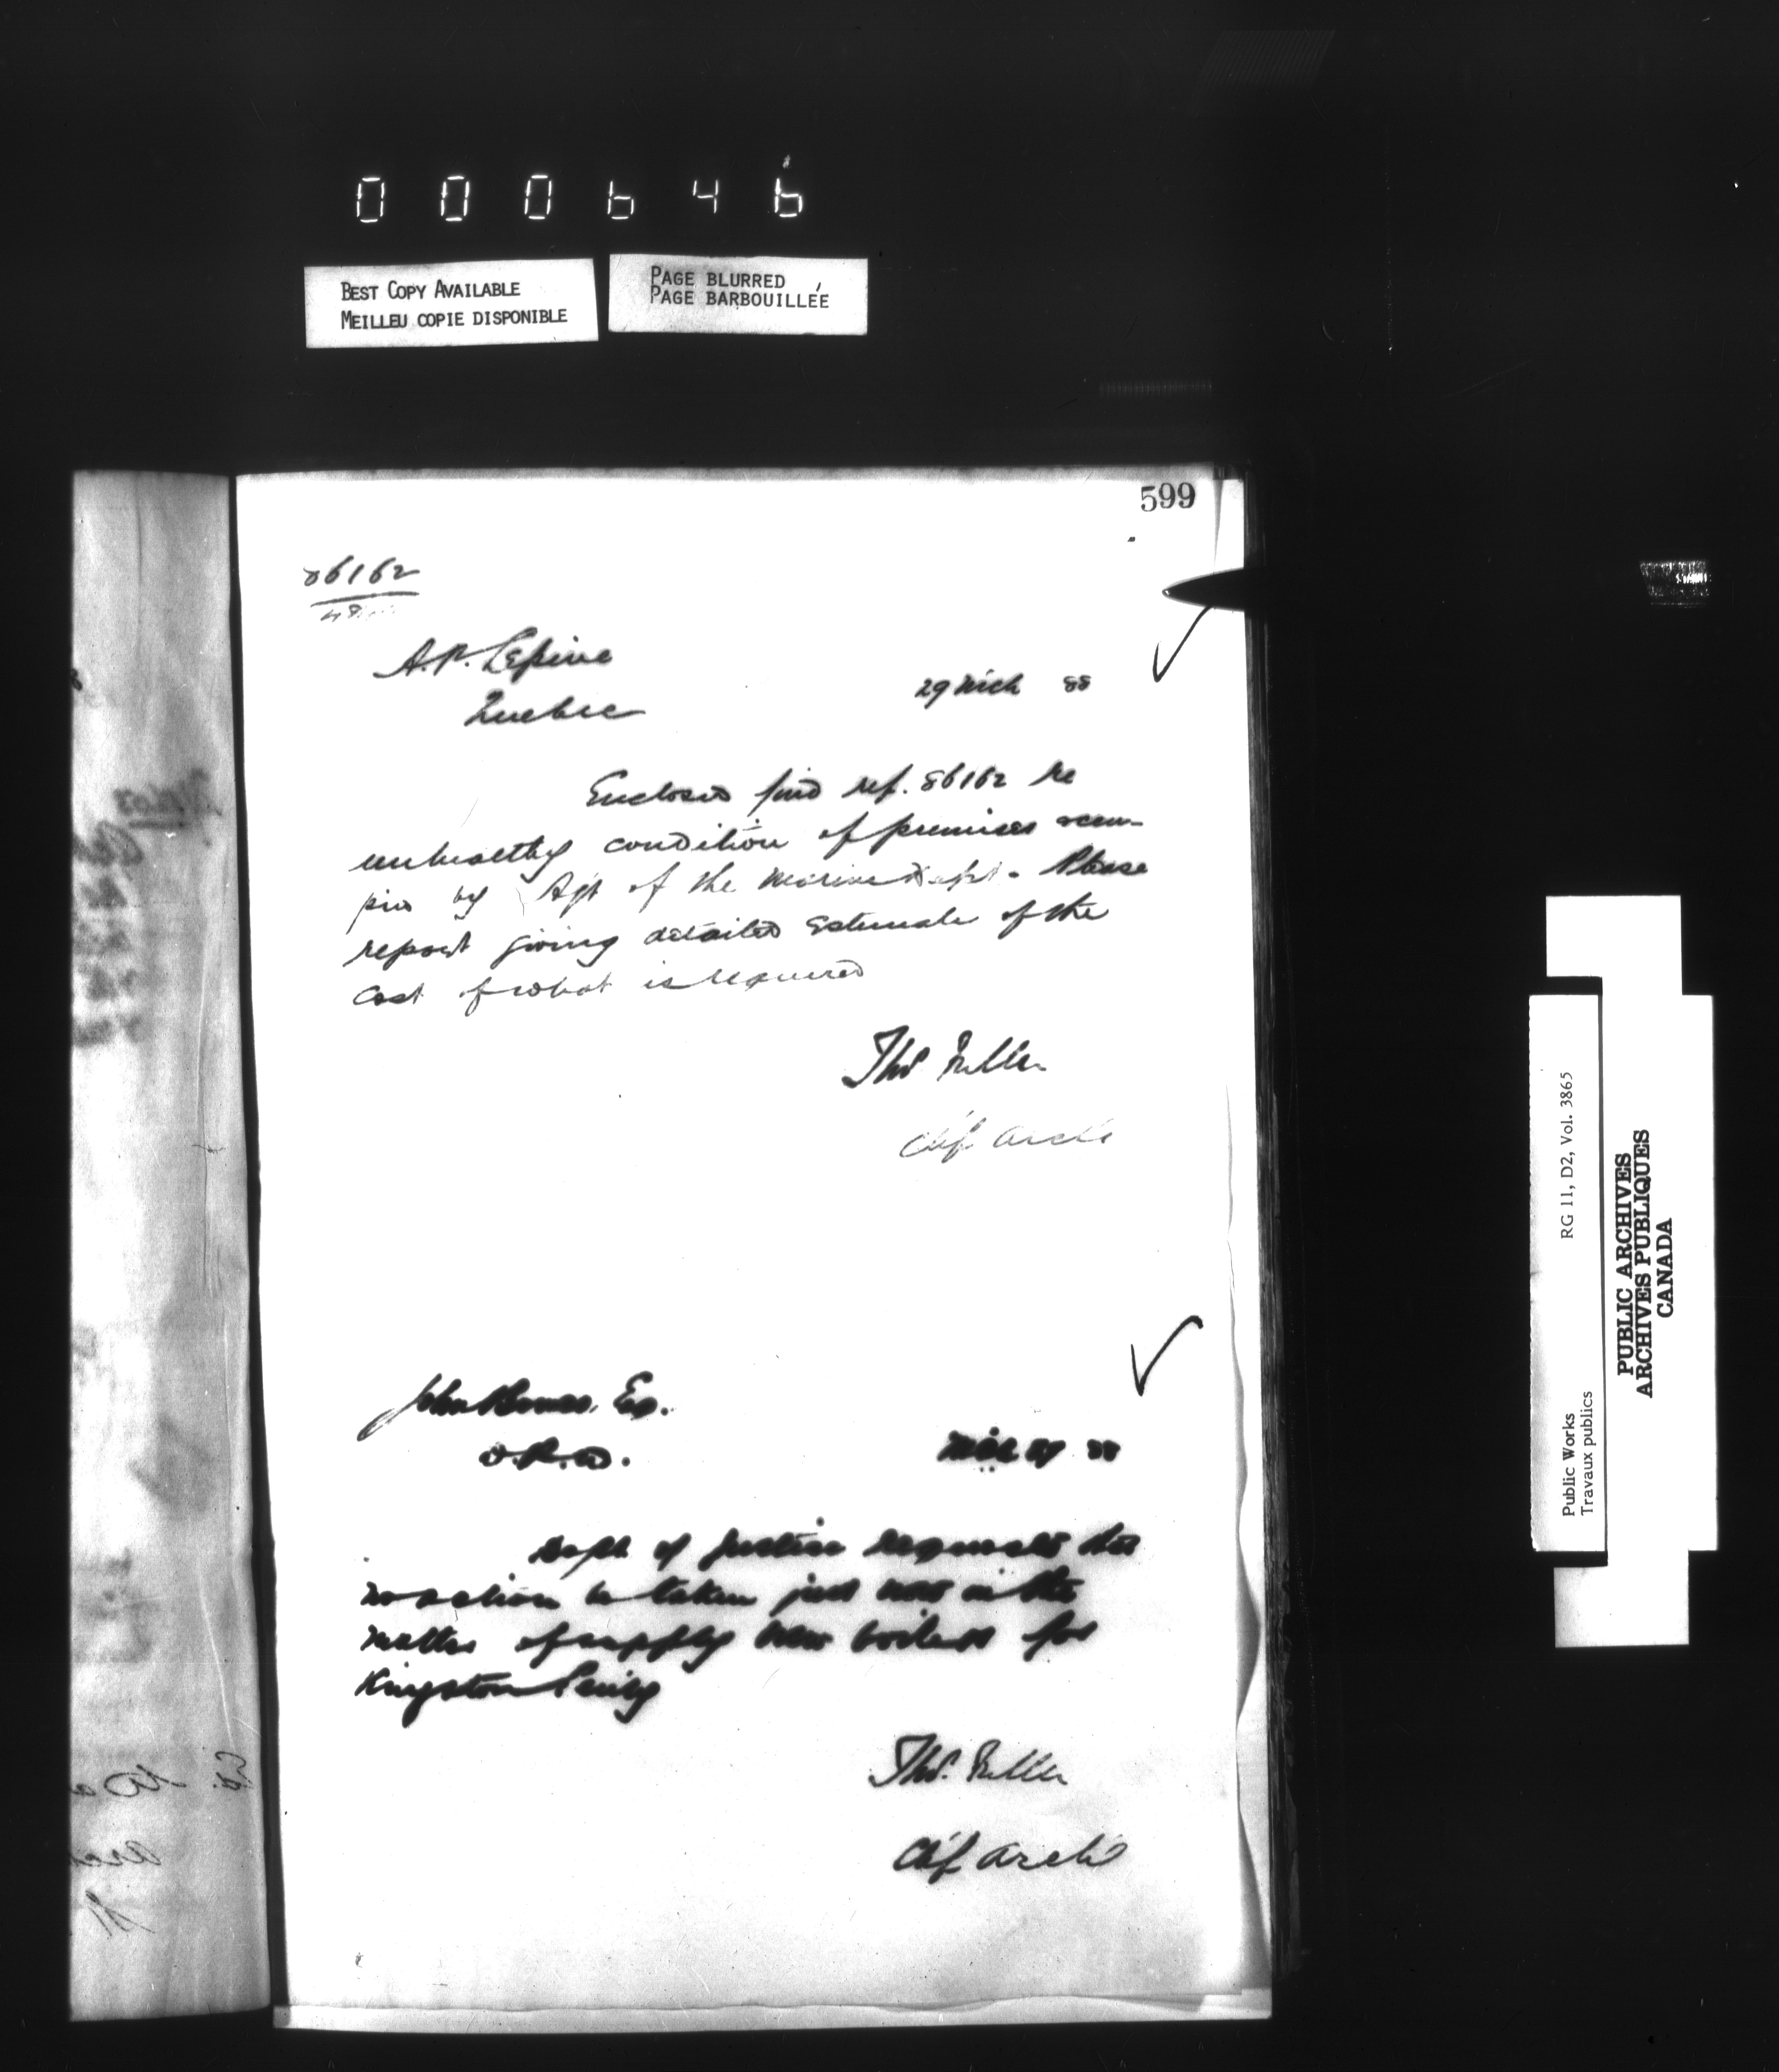 000646
BEST COPY AVAILABLE
MEILLEU COPIE DISPONIBLE
PAGE BLURRED
PAGE BARBOUILLÉE
599
86162
A.P. Lepine
Quebec
29 Mch 88
Enclosed find ref. 86162 re
unhealthy condition of premises occu-
pied by Agt of the Marine Dept. Please
report giving detailed estimate of the
cost of what is required
Thos Fuller
Chf Archt
John Bowes, Esq.
D.P.W.
Mch 29 88
Dept of Justice requests that
no action be taken just now in the
matter of supply new boilers for
Kingston Penity
Thos. Fuller
Chf Archt
Public Works
Travaux publics
RG 11, D2, Vol. 3865
PUBLIC ARCHIVES
ARCHIVES PUBLIQUES
CANADA